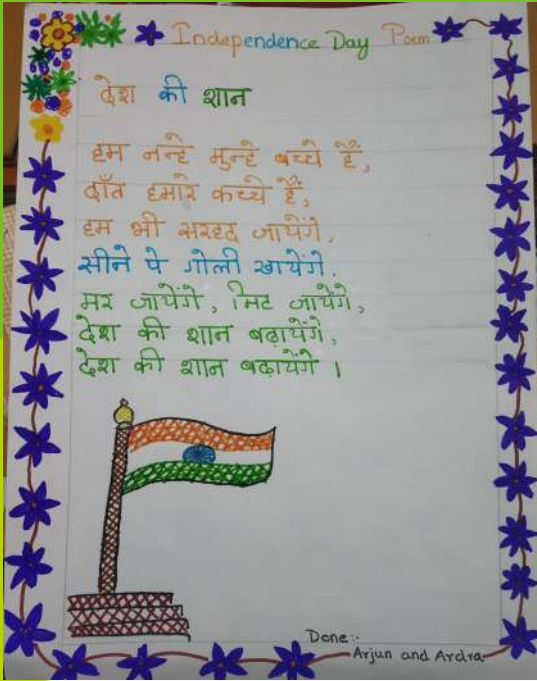 Independence Day Poem
देश की शान
हम नन्हे मुन्हे बच्चे हैं,
दाँत हमारे कच्चे हैं,
हम भी सरहद जायेंगे,
सीने पे गोली खायेंगे,
मर जायेंगे, मिट जायेंगे,
देश की शान बढ़ायेंगे,
देश की शान बढ़ायेंगे ।
Done:-
Arjun and Ardra